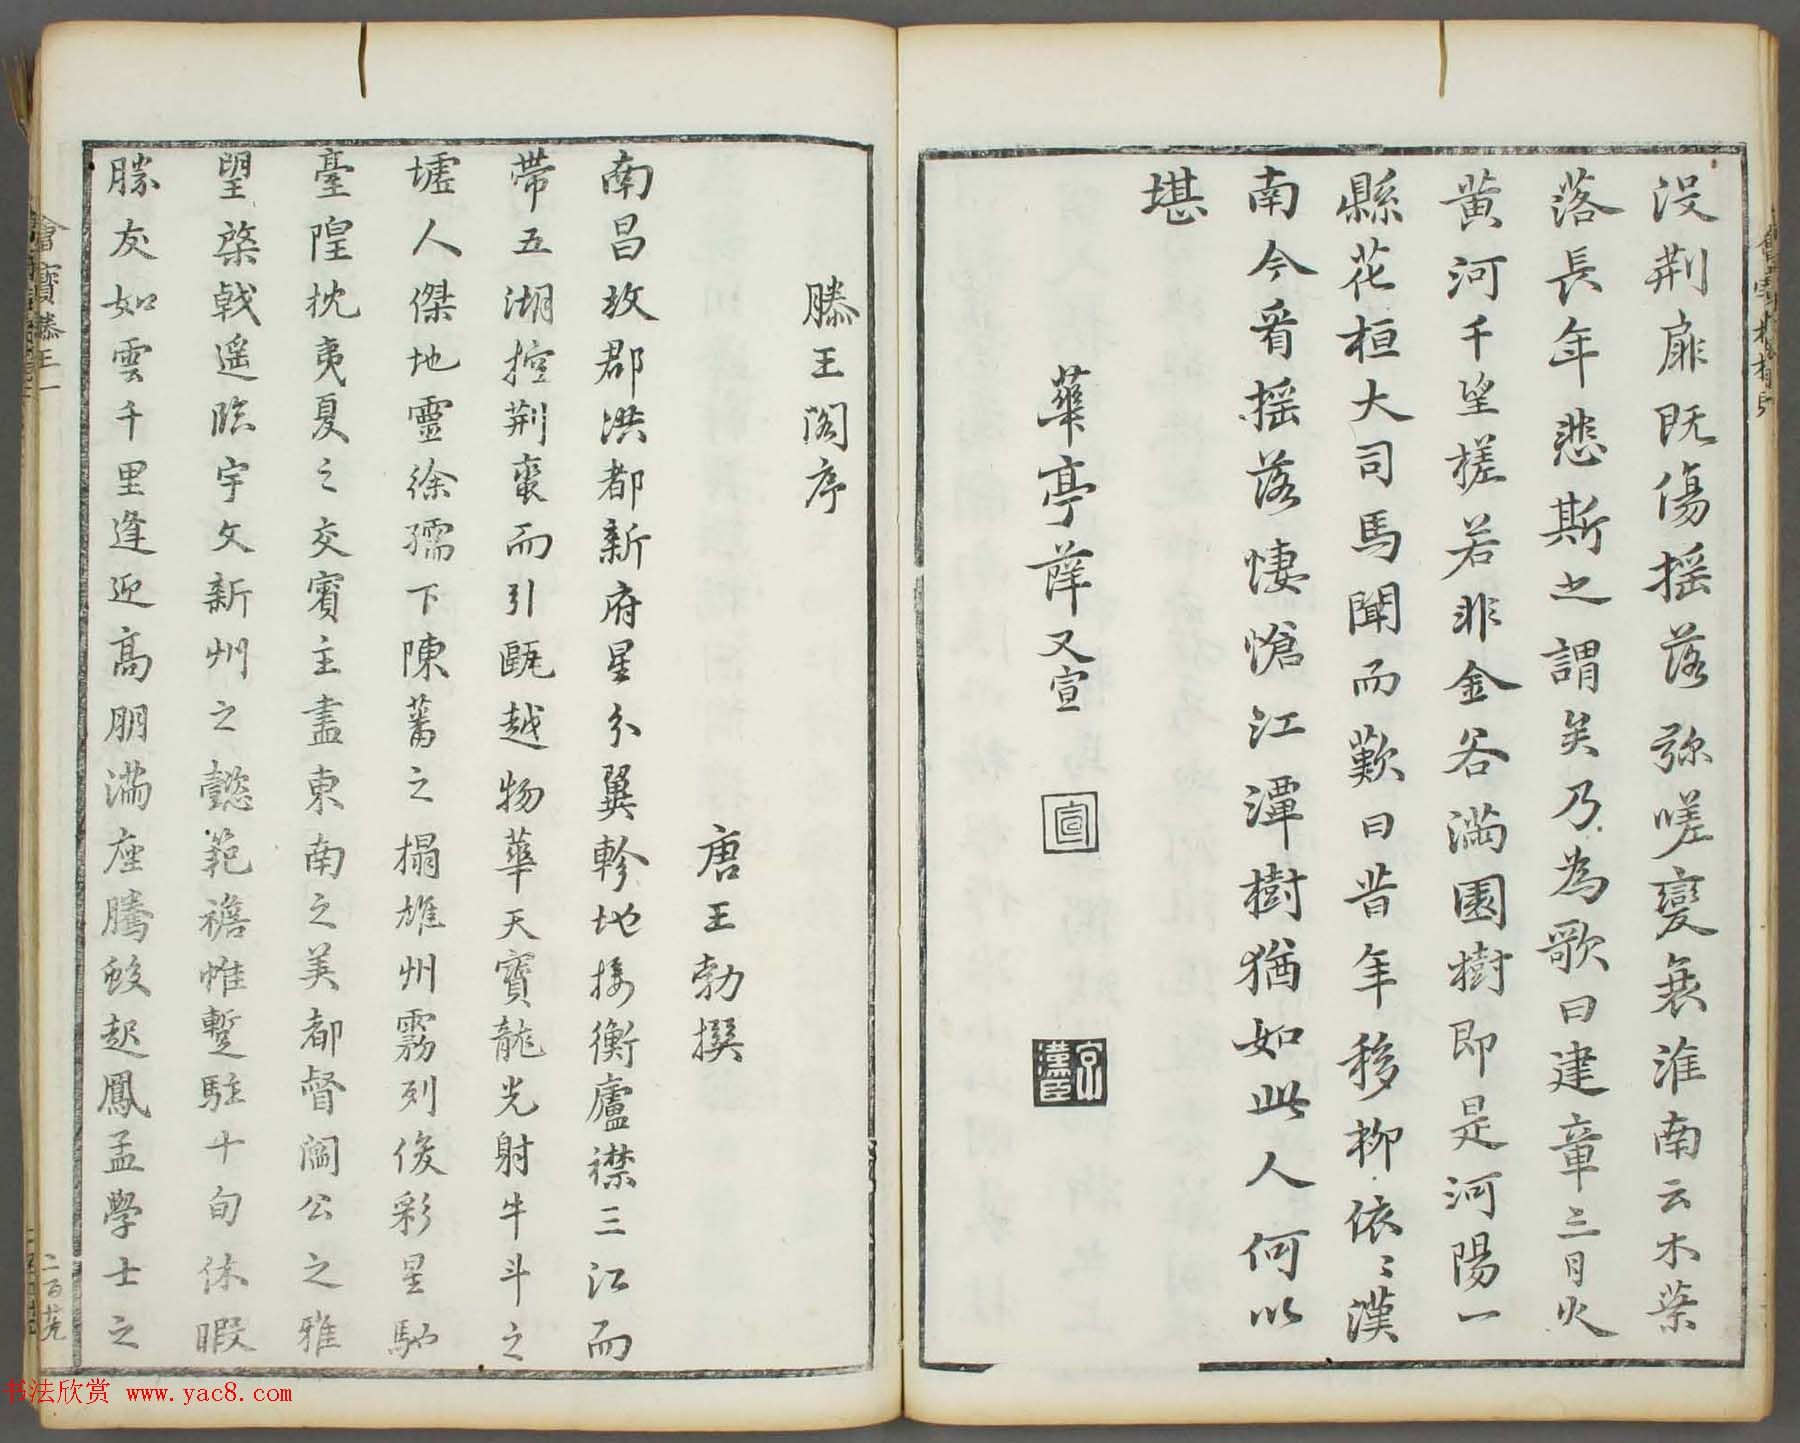 没荆扉既傷摇落弥嗟變衰淮南云木葉
落長年悲斯之謂矣乃為歌曰建章三月火
黄河千里槎若非金谷滿園樹即是河陽一
縣花桓大司馬聞而歎曰昔年移柳依〻漢
南今看摇落悽愴江潭樹猶如此人何以
堪
華亭薛又宣
滕王閣序
唐王勃撰
南昌故郡洪都新府星分翼軫地接衡廬襟三江而
帶五湖控荆蠻而引甌越物華天寶龍光射牛斗之
墟人傑地靈徐孺下陳蕃之榻雄州霧列俊彩星馳
臺隍枕夷夏之交賓主盡東南之美都督閻公之雅
望棨戟遥臨宇文新州之懿範襜帷暫駐十旬休暇
勝友如雲千里逢迎高朋滿座騰蛟起鳳孟學士之
會寶滕王一
书法欣赏 www.yac8.com